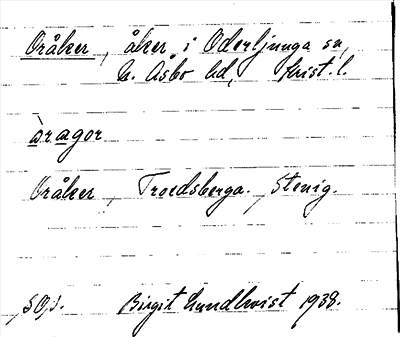 Oråker, åker i Oderljunga sn,
N. Åsbo hd, Krist. l.
àragor
Oråker, Troedsberga. Stenig.
SO,1. Birgit Lundkvist 1938.